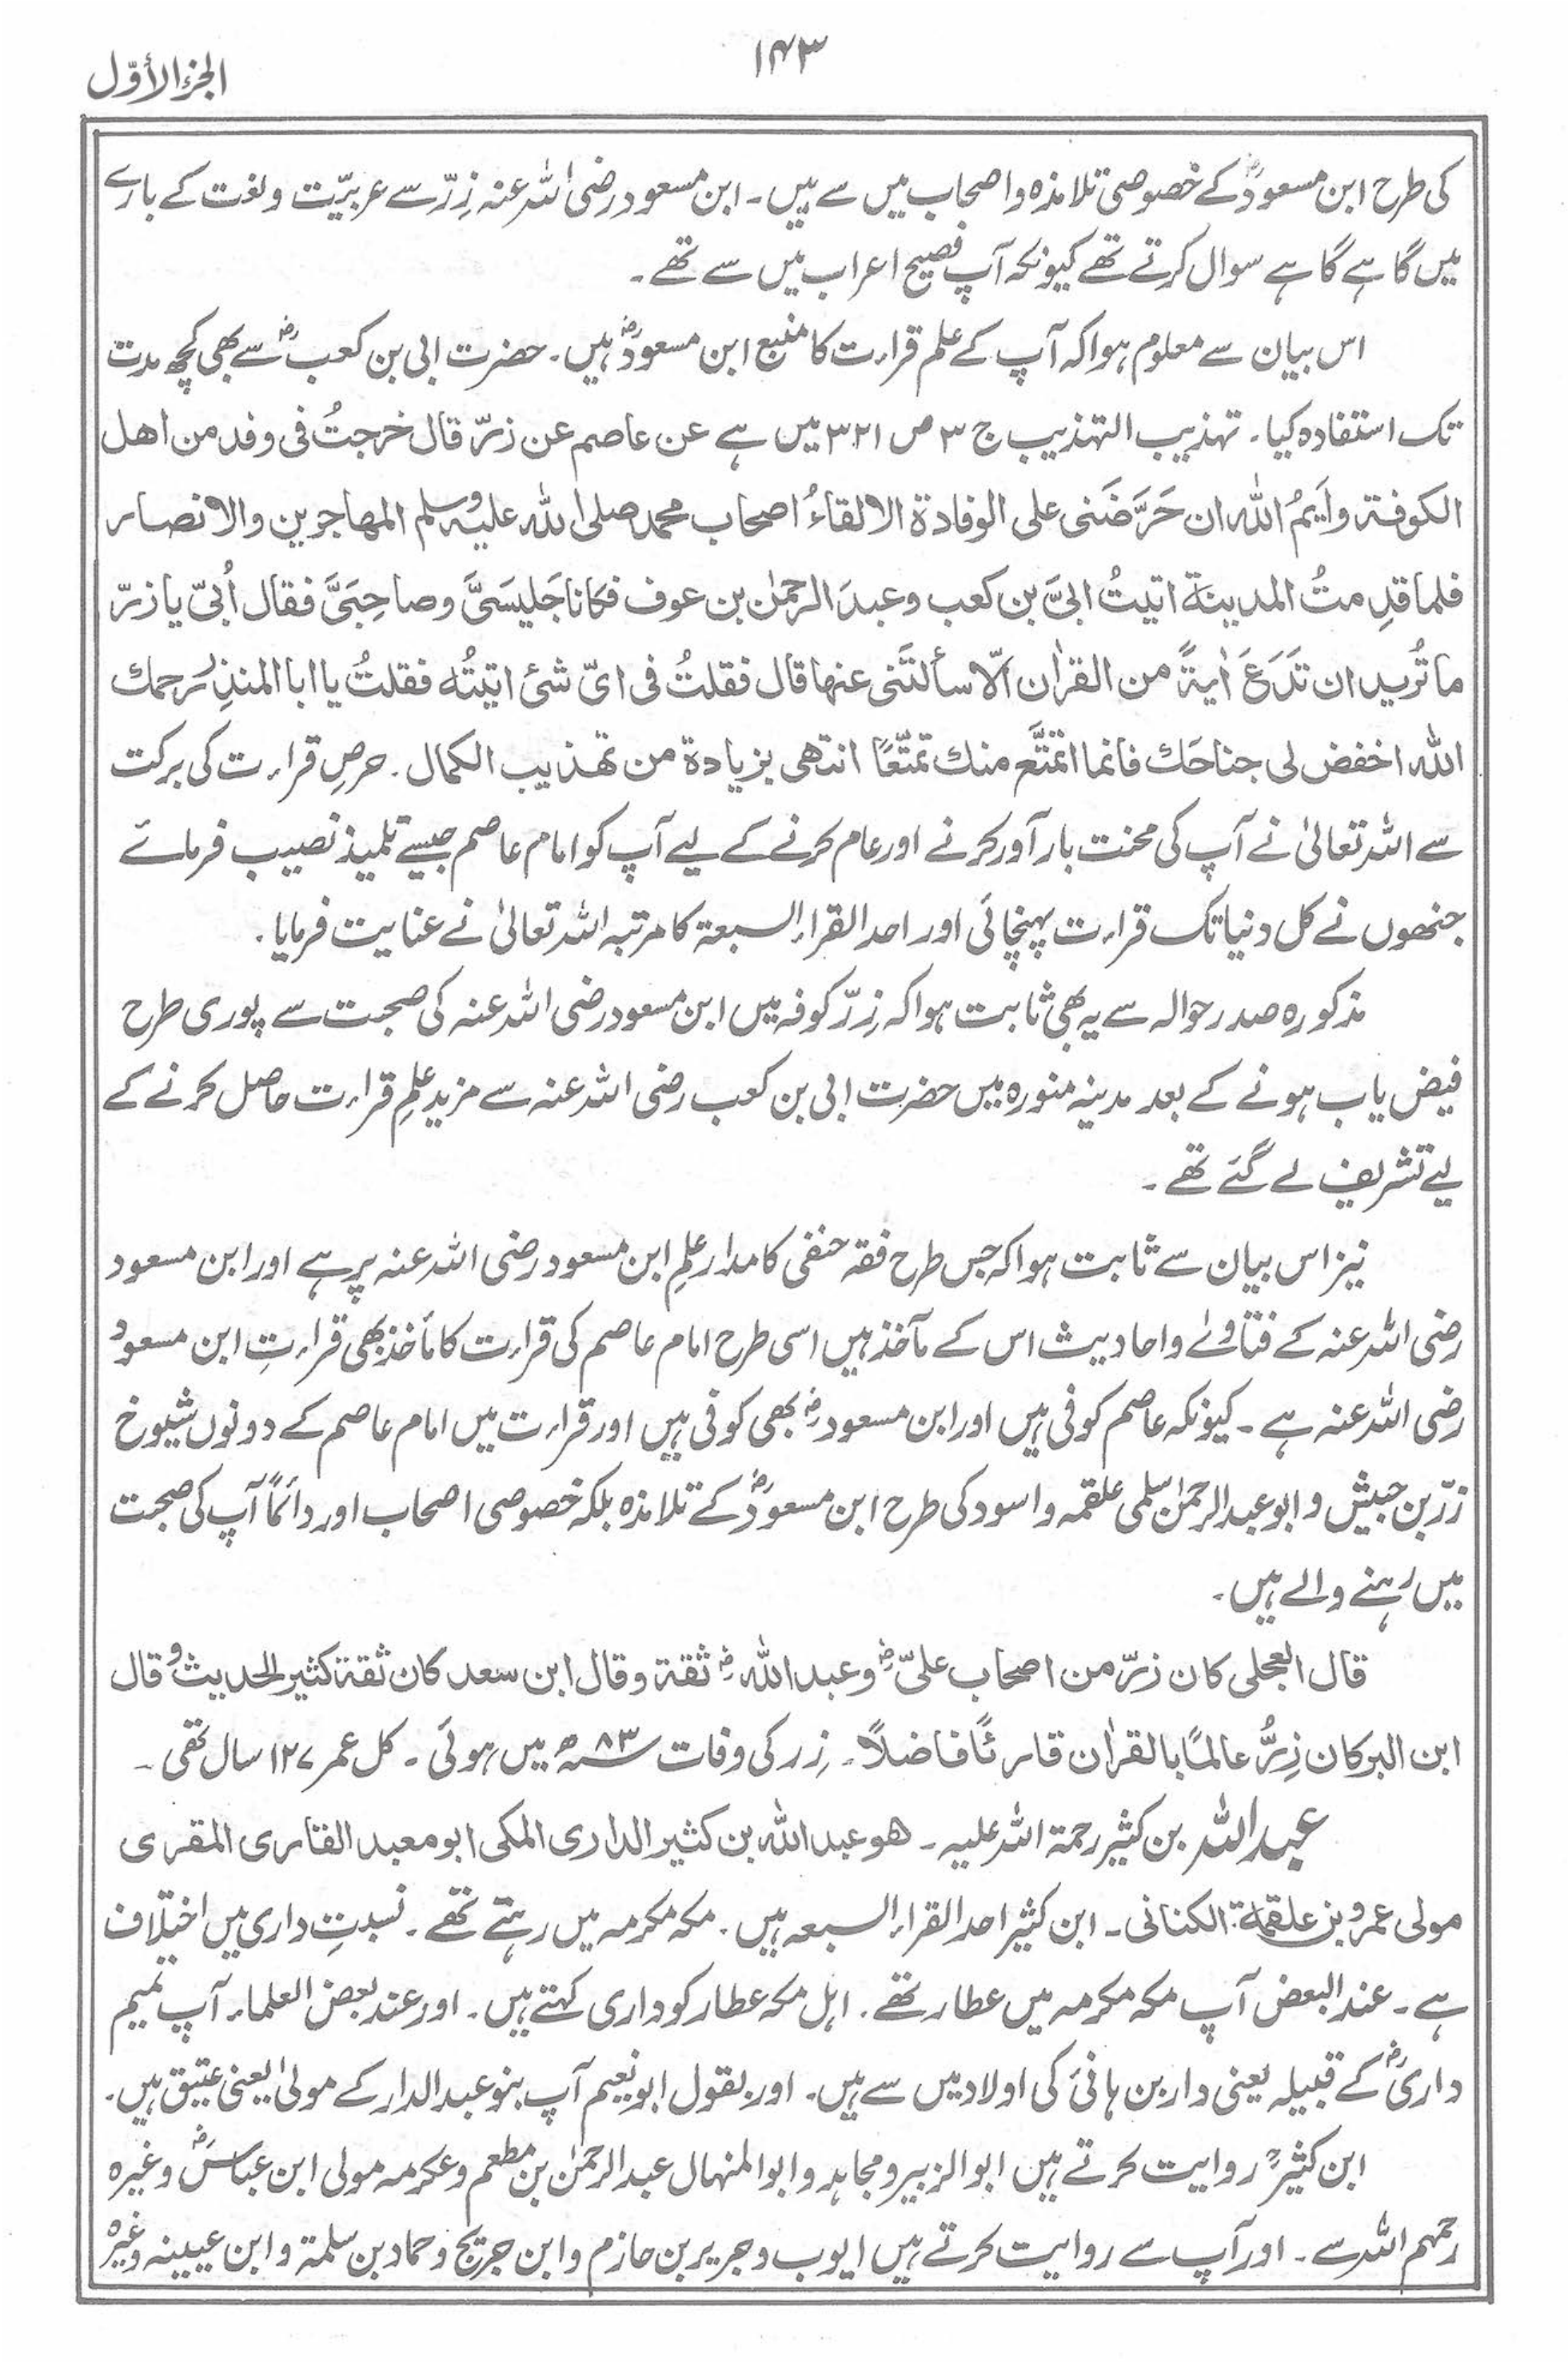 ۱۴۳
الجزء الأوّل
کی طرح ابن مسعودؓ کے خصوصی تلامذہ واصحاب میں سے ہیں۔ ابن مسعود رضی اللہ عنہ زِرّ سے عربیّت ولغت کے بارے
میں گاہے گاہے سوال کرتے تھے کیونکہ آپ فصیح اعراب میں سے تھے۔
اس بیان سے معلوم ہوا کہ آپ کے علم قراءت کا منبع ابن مسعودؓ ہیں۔ حضرت ابی بن کعبؓ سے بھی کچھ مدت
تک استفادہ کیا۔ تہذیب التہذیب ج ۳ ص ۳۲۱ میں ہے عن عاصم عن زرّ قال خرجتُ فی وفد من اهل
الکوفۃ وأیمُ اللہ ان حَرَّضَنی علی الوفادة الا لقاءُ اصحاب محمد صلی اللہ علیہ وسلم المهاجرین والانصار
فلما قدِمتُ المدینۃ اتیتُ ابیَّ بن کعب وعبدَ الرحمٰن بن عوف فکانا جَلیسَیَّ وصاحِبَیَّ فقال اُبیّ یا زرّ
ما تُرید ان تَدَعَ اٰیۃً من القراٰن الّا سألتَنی عنها قال فقلتُ فی ایّ شئ اتیتُه فقلتُ یا ابا المنذِر یرحمك
اللہ اخفض لی جناحَك فانما اتمتَّع منك تمتّعًا انتهی بزیادة من تهذیب الکمال۔ حرصِ قراءت کی برکت
سے اللہ تعالیٰ نے آپ کی محنت بار آور کرنے اور عام کرنے کے لیے آپ کو امام عاصم جیسے تلمیذ نصیب فرمائے
جنھوں نے کل دنیا تک قراءت پہنچائی اور احد القراء السبعۃ کا مرتبہ اللہ تعالیٰ نے عنایت فرمایا۔
مذکورہ صدر حوالہ سے یہ بھی ثابت ہوا کہ زِرّ کوفہ میں ابن مسعود رضی اللہ عنہ کی صحبت سے پوری طرح
فیض یاب ہونے کے بعد مدینہ منورہ میں حضرت ابی بن کعب رضی اللہ عنہ سے مزید علمِ قراءت حاصل کرنے کے
لیے تشریف لے گئے تھے۔
نیز اس بیان سے ثابت ہوا کہ جس طرح فقہ حنفی کا مدار علمِ ابن مسعود رضی اللہ عنہ پر ہے اور ابن مسعود
رضی اللہ عنہ کے فتاوٰے واحادیث اس کے مآخذ ہیں اسی طرح امام عاصم کی قراءت کا مأخذ بھی قراءتِ ابن مسعود
رضی اللہ عنہ ہے۔ کیونکہ عاصم کوفی ہیں اور ابن مسعودؓ بھی کوفی ہیں اور قراءت میں امام عاصم کے دونوں شیوخ
زرّ بن حبیش و ابو عبد الرحمٰن سلمی علقمہ واسود کی طرح ابن مسعودؓ کے تلامذہ بلکہ خصوصی اصحاب اور دائمًا آپ کی صحبت
میں رہنے والے ہیں۔
قال العجلی کان زرّ من اصحاب علیّؓ وعبد اللہؓ ثقۃ وقال ابن سعد کان ثقۃ کثیر الحدیث وقال
ابن البر کان زِرُّ عالمًا بالقراٰن قارئًا فاضلًا۔ زِر کی وفات ۸۳ھ میں ہوئی۔ کل عمر ۱۲۷ سال تھی۔
عبد اللہ بن کثیر رحمۃ اللہ علیہ۔ هو عبد اللہ بن کثیر الداری المکی ابو معبد القاری المقری
مولی عمرو بن علقمۃ الکنانی۔ ابن کثیر احد القراء السبعہ ہیں۔ مکہ مکرمہ میں رہتے تھے۔ نسبتِ داری میں اختلاف
ہے۔ عند البعض آپ مکہ مکرمہ میں عطار تھے۔ اہل مکہ عطار کو داری کہتے ہیں۔ اور عند بعض العلماء آپ تمیم
داریؓ کے قبیلہ یعنی دار بن ہانئ کی اولاد میں سے ہیں۔ اور بقول ابو نعیم آپ بنو عبد الدار کے مولیٰ یعنی عتیق ہیں۔
ابن کثیرؒ روایت کرتے ہیں ابو الزبیر ومجاہد وابو المنہال عبد الرحمٰن بن مطعم وعکرمہ مولی ابن عباسؓ وغیرہ
رحمہم اللہ سے۔ اور آپ سے روایت کرتے ہیں ایوب وجریر بن حازم وابن جریج وحماد بن سلمۃ وابن عیینہ وغیرہ